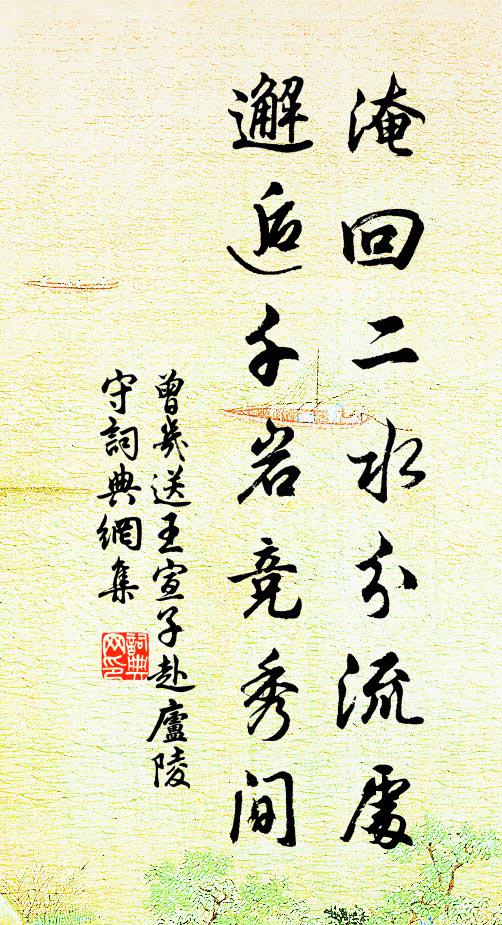 淹回二水分流處
邂逅千岩競秀間
曾幾送王宣子赴廬陵
守詞典網集
詞典
网印